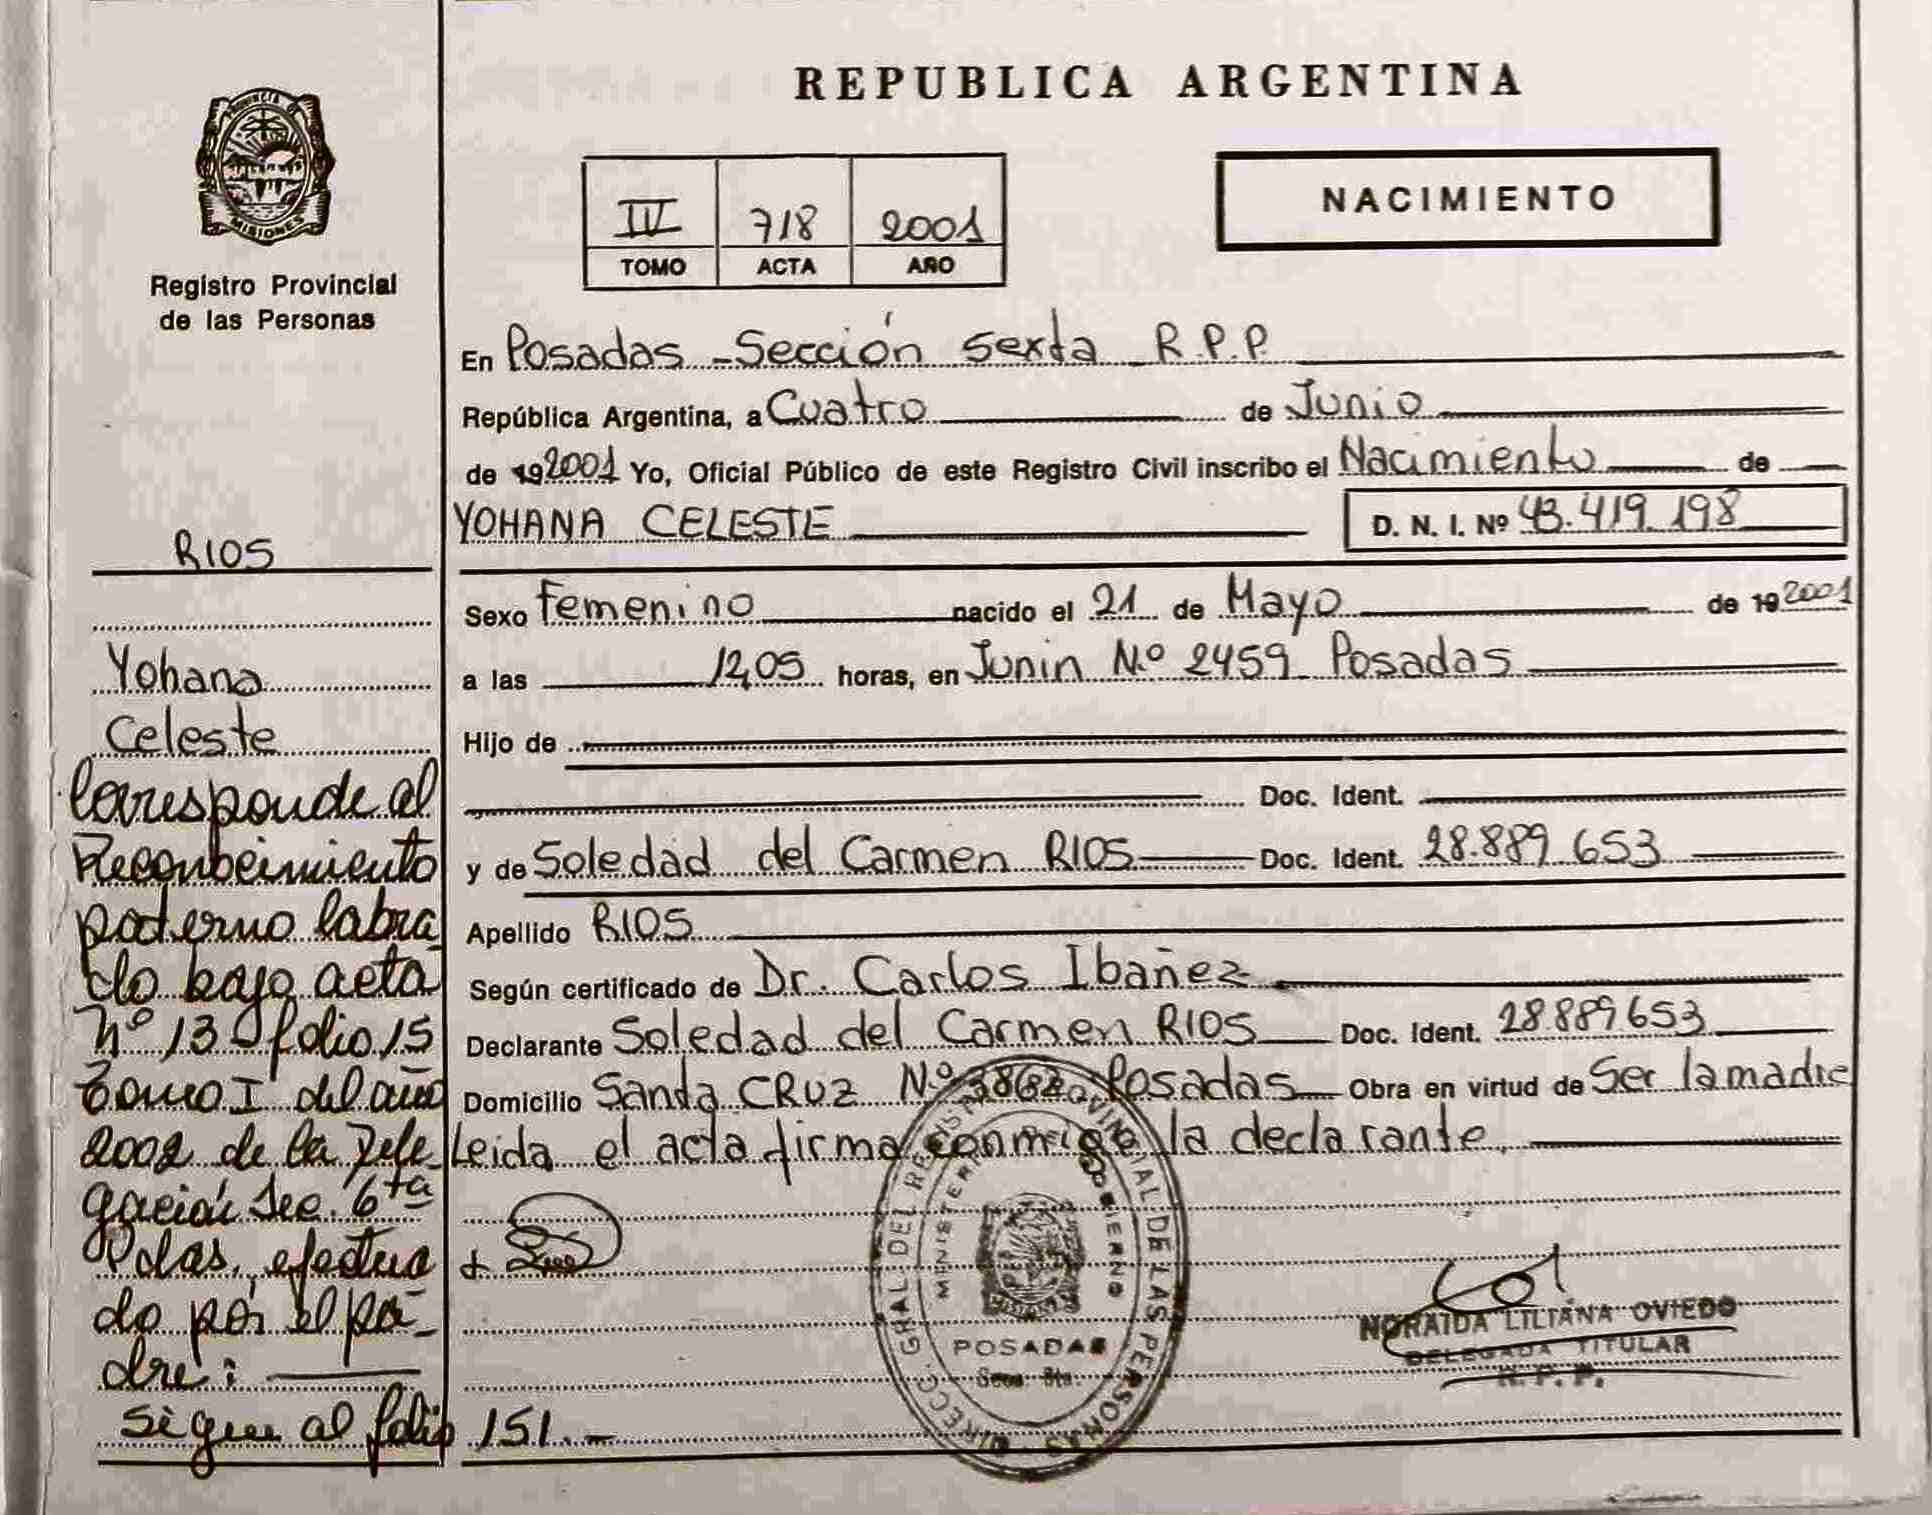 REPUBLICA ARGENTINA
PROVINCIA DE
MISIONES
Registro Provincial
de las Personas
IV 718 2001
TOMO ACTA AÑO
NACIMIENTO
En Posadas - Sección Sexta R.P.P.
República Argentina, a Cuatro de Junio
de 192001 Yo, Oficial Público de este Registro Civil inscribo el Nacimiento de
YOHANA CELESTE D. N. I. Nº 43.419.198
Sexo Femenino nacido el 21 de Mayo de 192001
a las 12,05 horas, en Junin N.º 2459 Posadas
Hijo de
Doc. Ident.
y de Soledad del Carmen RIOS Doc. Ident. 28.889.653
Apellido RIOS
Según certificado de Dr. Carlos Ibañez
Declarante Soledad del Carmen RIOS Doc. Ident. 28.889653
Domicilio Santa CRUZ N.º Posadas Obra en virtud de Ser la madre
Leida el acta firma conmigo la declarante.
RIOS
Yohana
Celeste
Corresponde al
Reconocimiento
paterno labra
do bajo acta
Nº 13 folio 15
Tomo I del año
2002 de la Dele-
gación Sec. 6ta
Pdas, efectua
do por el pa-
dre:
sigue al folio 151.-
DIRECC. GRAL DEL REGISTRO PROVINCIAL DE LAS PERSONAS
MINISTERIO GOBIERNO
POSADAS
Secc. 6ta.
NORAIDA LILIANA OVIEDO
DELEGADA TITULAR
R. P. P.